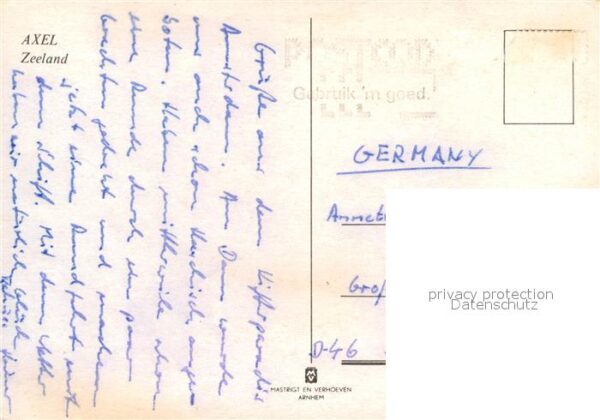 AXEL
Zeeland
Grüße aus dem Kifferparadies
Amsterdam. Am Dam wurde
uns auch schon Haschisch ange-
boten. Haben mittlerweile schon
eine Runde durch ein paar
Grachten gedreht und machen
jetzt eine Rundfahrt mit
dem Schiff. Mit dem Wetter
haben wir natürlich Glück
POSTCODE
Gebruik 'm goed.
GERMANY
Annet
Groß
D-46
privacy protection
Datenschutz
MASTRIGT EN VERHOEVEN
ARNHEM